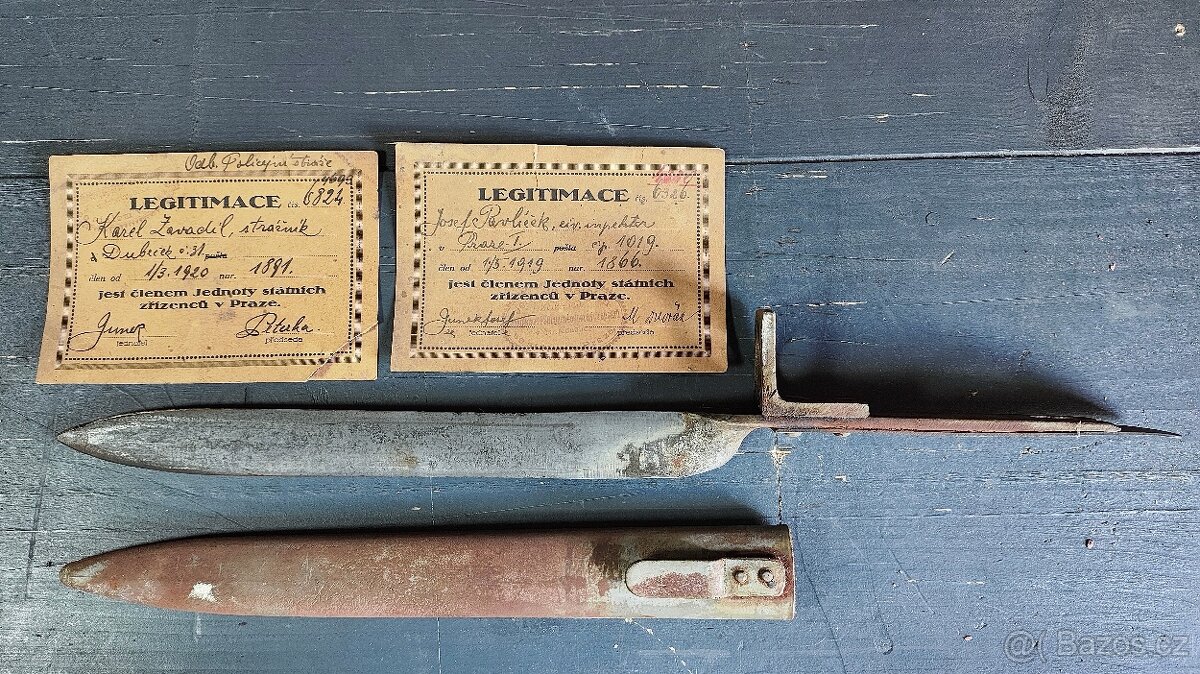 Odb. Policejní stráže
4694
LEGITIMACE čís. 6824
Karel Zavadil, strážník
v Dubeček č. 31 pošta
člen od 1/3. 1920 nar. 1891.
jest členem Jednoty státních
zřízenců v Praze.
Junek
jednatel předseda
LEGITIMACE čís. 6326.
Josef Pavlíček, civ. inspektor
v Praze I. pošta čp. 1019.
člen od 1/5. 1919 nar. 1866.
jest členem Jednoty státních
zřízenců v Praze.
Junek Josef M. Dvořák
jednatel předseda
@( Bazos.cz